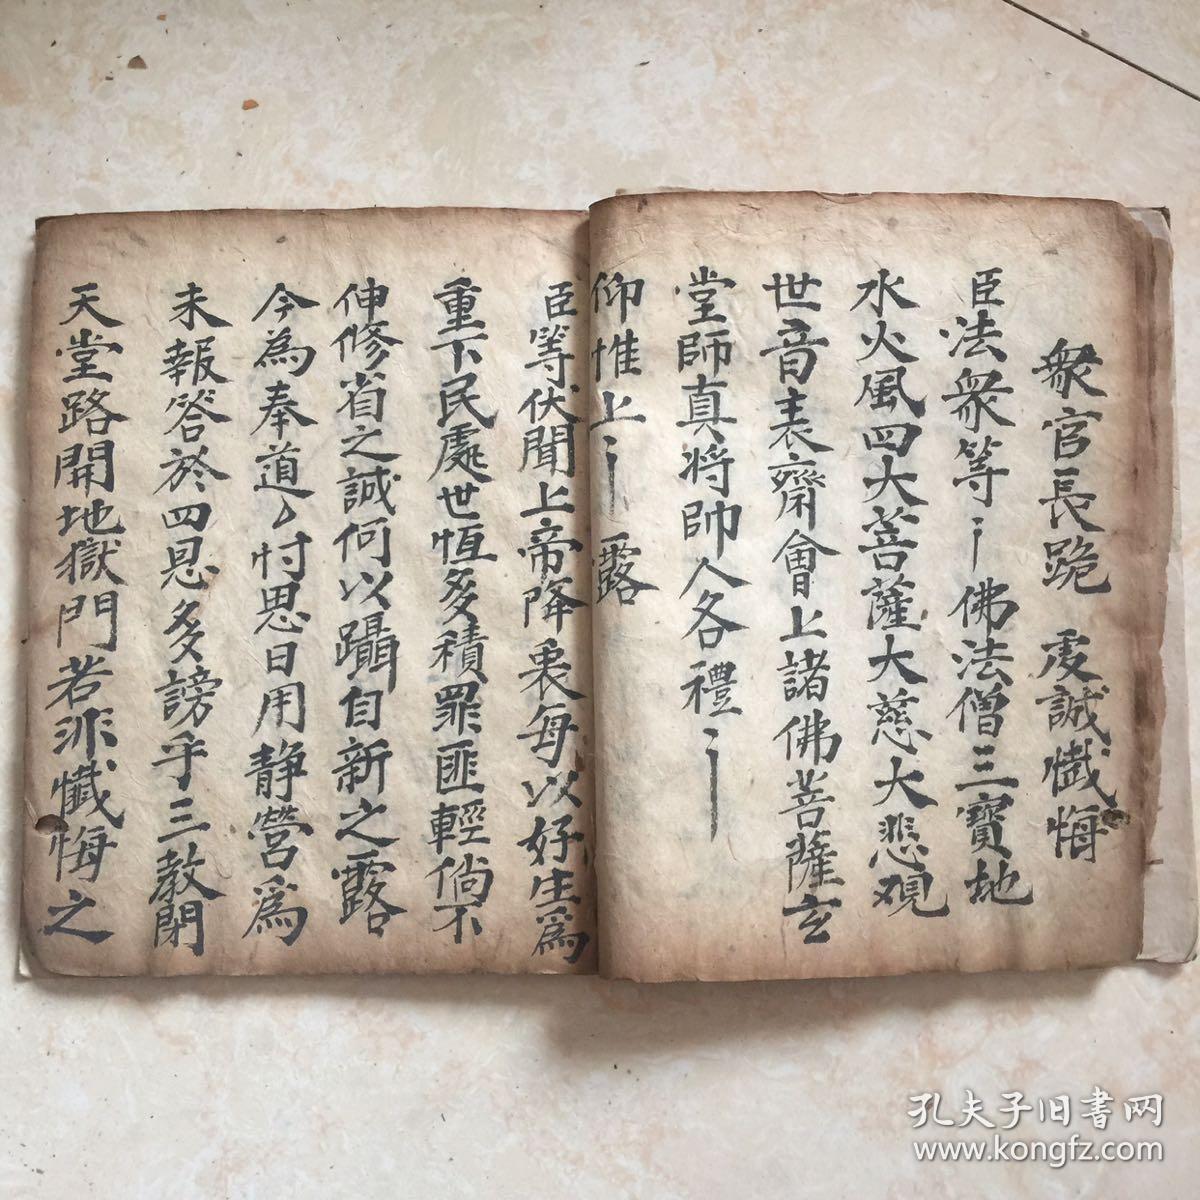 衆官長跪 虔誠懺悔
臣法衆等 佛法僧三寶地
水火風四大菩薩大慈大悲观
世音表齋會上諸佛菩薩玄
堂師真将帥人各禮
仰惟上 露
臣等伏聞上帝降衷每以好生爲
重下民處世恒多積罪匪輕倘不
伸修省之誠何以躡自新之露
今為奉道忖思日用静營爲
未報答於四恩多謗乎三教閉
天堂路開地獄門若非懺悔之
孔夫子旧书网
www.kongfz.com